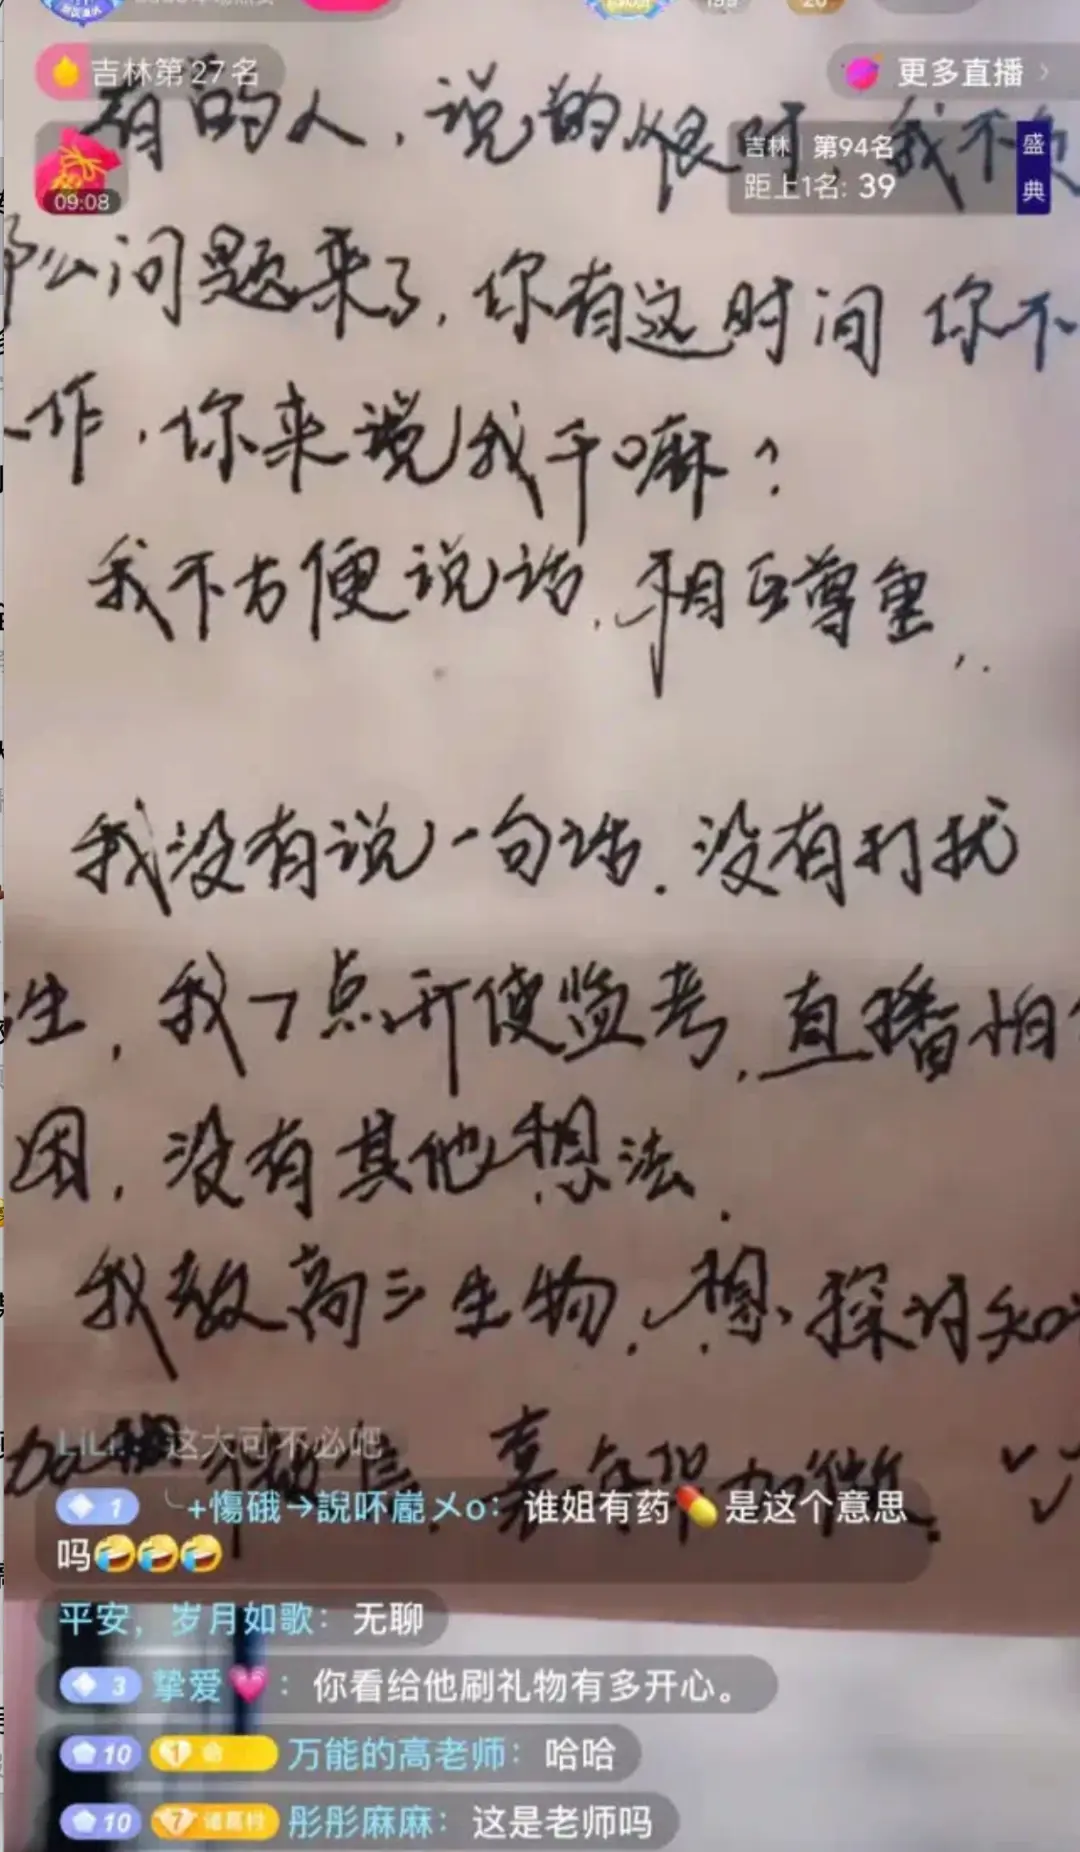 吉林第27名
更多直播
有的人，说的很对，我不负
吉林 第94名
盛典
距上1名: 39
09:08
那么问题来了，你有这时间 你不
工作，你来说我干嘛？
我不方便说话，相互尊重，..
我没有说一句话．没有打扰
生，我了点开使监考，直播怕
困，没有其他想法．
我教高三生物，想探讨知
加我 微信，喜欢的加微
LiLi 这大可不必吧
1 ╰+慯硪→說吥嚴メo：谁姐有药💊是这个意思
吗🤣🤣🤣
平安，岁月如歌：无聊
3 挚爱💗：你看给他刷礼物有多开心。
10 1 万能的高老师：哈哈
10 7 诸葛村 彤彤麻麻：这是老师吗